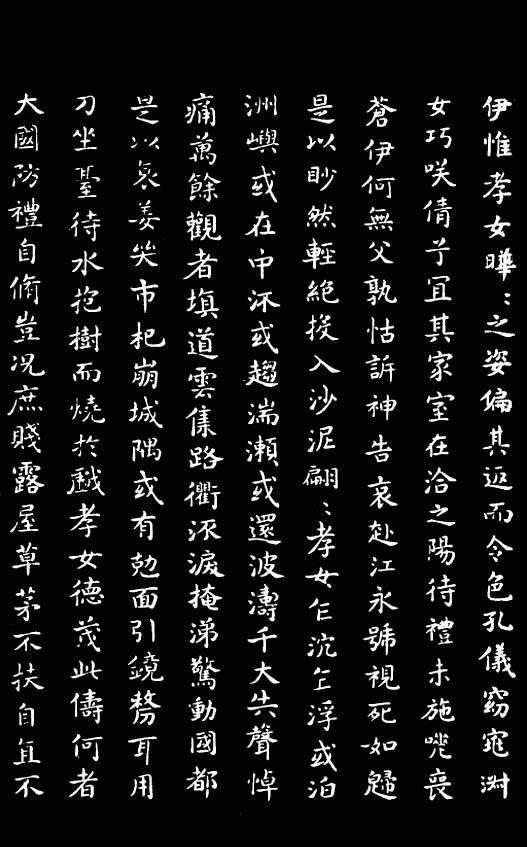 伊惟孝女曄:之姿偏其返而令色孔儀窈窕淑
女巧咲倩兮宜其家室在洽之陽待禮未施嗟喪
蒼伊何無父孰怙訴神告哀赴江永號視死如歸
是以眇然輕絕投入沙泥翩:孝女乍沉乍浮或泊
洲嶼或在中流或趨湍瀨或還波濤千大失聲悼
痛萬餘觀者填道雲集路衢流淚掩涕驚動國都
是以哀姜哭市杞崩城隅或有尅面引鏡剺耳用
刀坐臺待水抱樹而燒於戲孝女德茂此儔何者
大國防禮自脩豈況庶賤露屋草茅不扶自直不